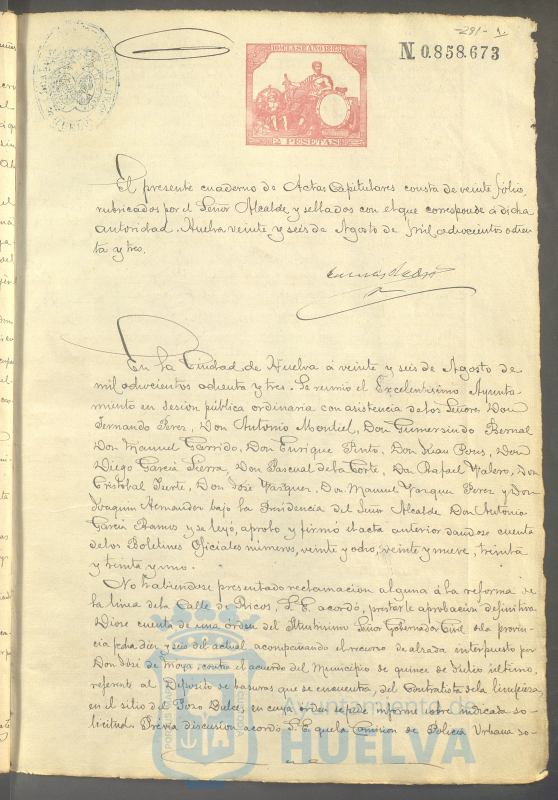 291- 1.
10ª CLASE AÑO 1883
N. 0.858.673
2 PESETAS
El presente cuaderno de Actas Capitulares consta de veinte folios
rubricados por el Señor Alcalde, y sellados con el que corresponde á dicha
autoridad. Huelva veinte y seis de Agosto de mil odrocientos odren
ta y tres.
En la Ciudad de Huelva á veinte y seis de Agosto de
mil odrocientos odrenta y tres. Se reunio el Excelentisimo Ayunta-
miento en sesion pública ordinaria con asistencia de los Señores Don
Fernando Perez, Don Antonio Montiel, Don Gumersindo Bernal
Don Manuel Garrido, Don Enrique Pinto, Don Juan Don
Diego Garcia Sierra, Don Pascual de la Corte, Don Rafael Valero, Don
Cristobal Don José Vazquez, Don Manuel Vazquez Perez y Don
Joaquin Hernandez bajo la Presidencia del Señor Alcalde Don Antonio
Garcia Ramos y se leyó, aprobo y firmó el acta anterior dandose cuenta
de los Boletines Oficiales números, veinte y odro, veinte y nueve, treinta
y treinta y uno.
No habiendose presentado reclamacion alguna á la reforma de
la linea de la Calle de Ricos, S. E. acordó, prestarle aprobacion definitiva.
Diose cuenta de una órden del Ilustrisimo Señor Gobernador Civil de la provin-
cia fecha diez y seis del actual acompañando el recurso de alzada interpuesto por
Don José de Moya, contra el acuerdo del Municipio de quince de Julio último,
referente al Depósito de basuras que se encuentra, del Contratista de la limpieza,
en el sitio del Pozo Dulce, en cuya órden se pide informe sobre indicada so-
licitud. Prévia discusion acordó S. E. que la Comision de Policia Urbana so-
Ayuntamiento de
HUELVA